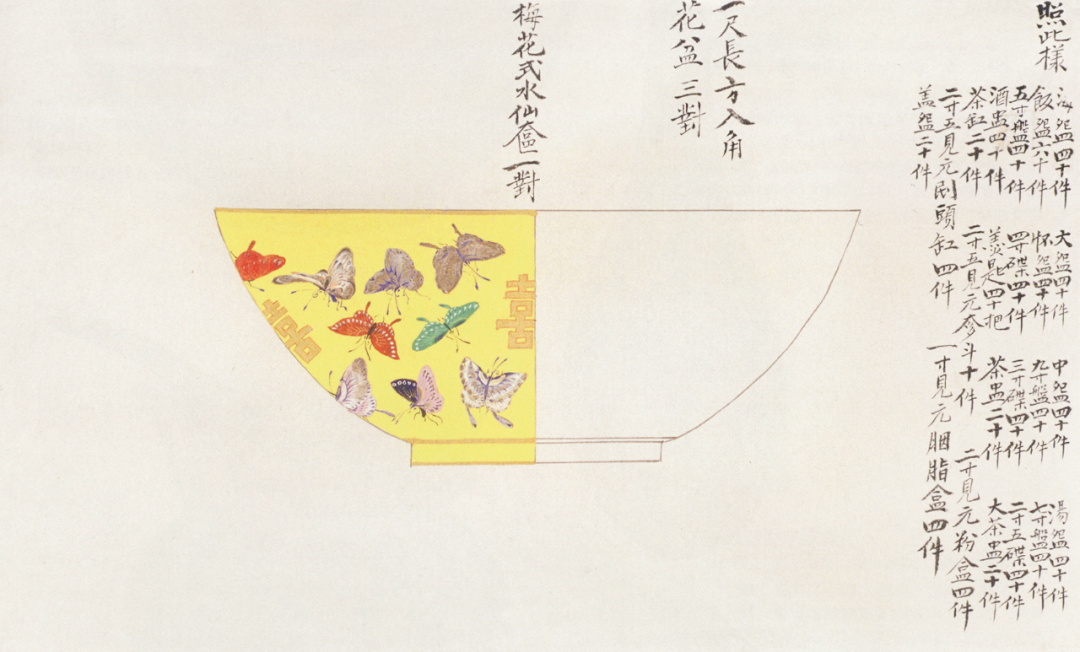 照此樣
海盌四十件 大盌四十件 中盌四十件 湯盌四十件
飯盌六十件 怀盌四十件 九寸盤四十件 七寸盤四十件
五寸盤四十件 四寸碟四十件 三寸碟四十件 二寸五碟四十件
酒盅四十件 羹匙四十把 茶盅二十件 大茶盅二十件
茶缸二十件 二寸五見元奓斗十件 二寸見元粉盒四件
二寸五見元刷頭缸四件 一寸見元胭脂盒四件
盖盌二十件
一尺長方入角
花盆三對
梅花式水仙盆二對
喜
囍